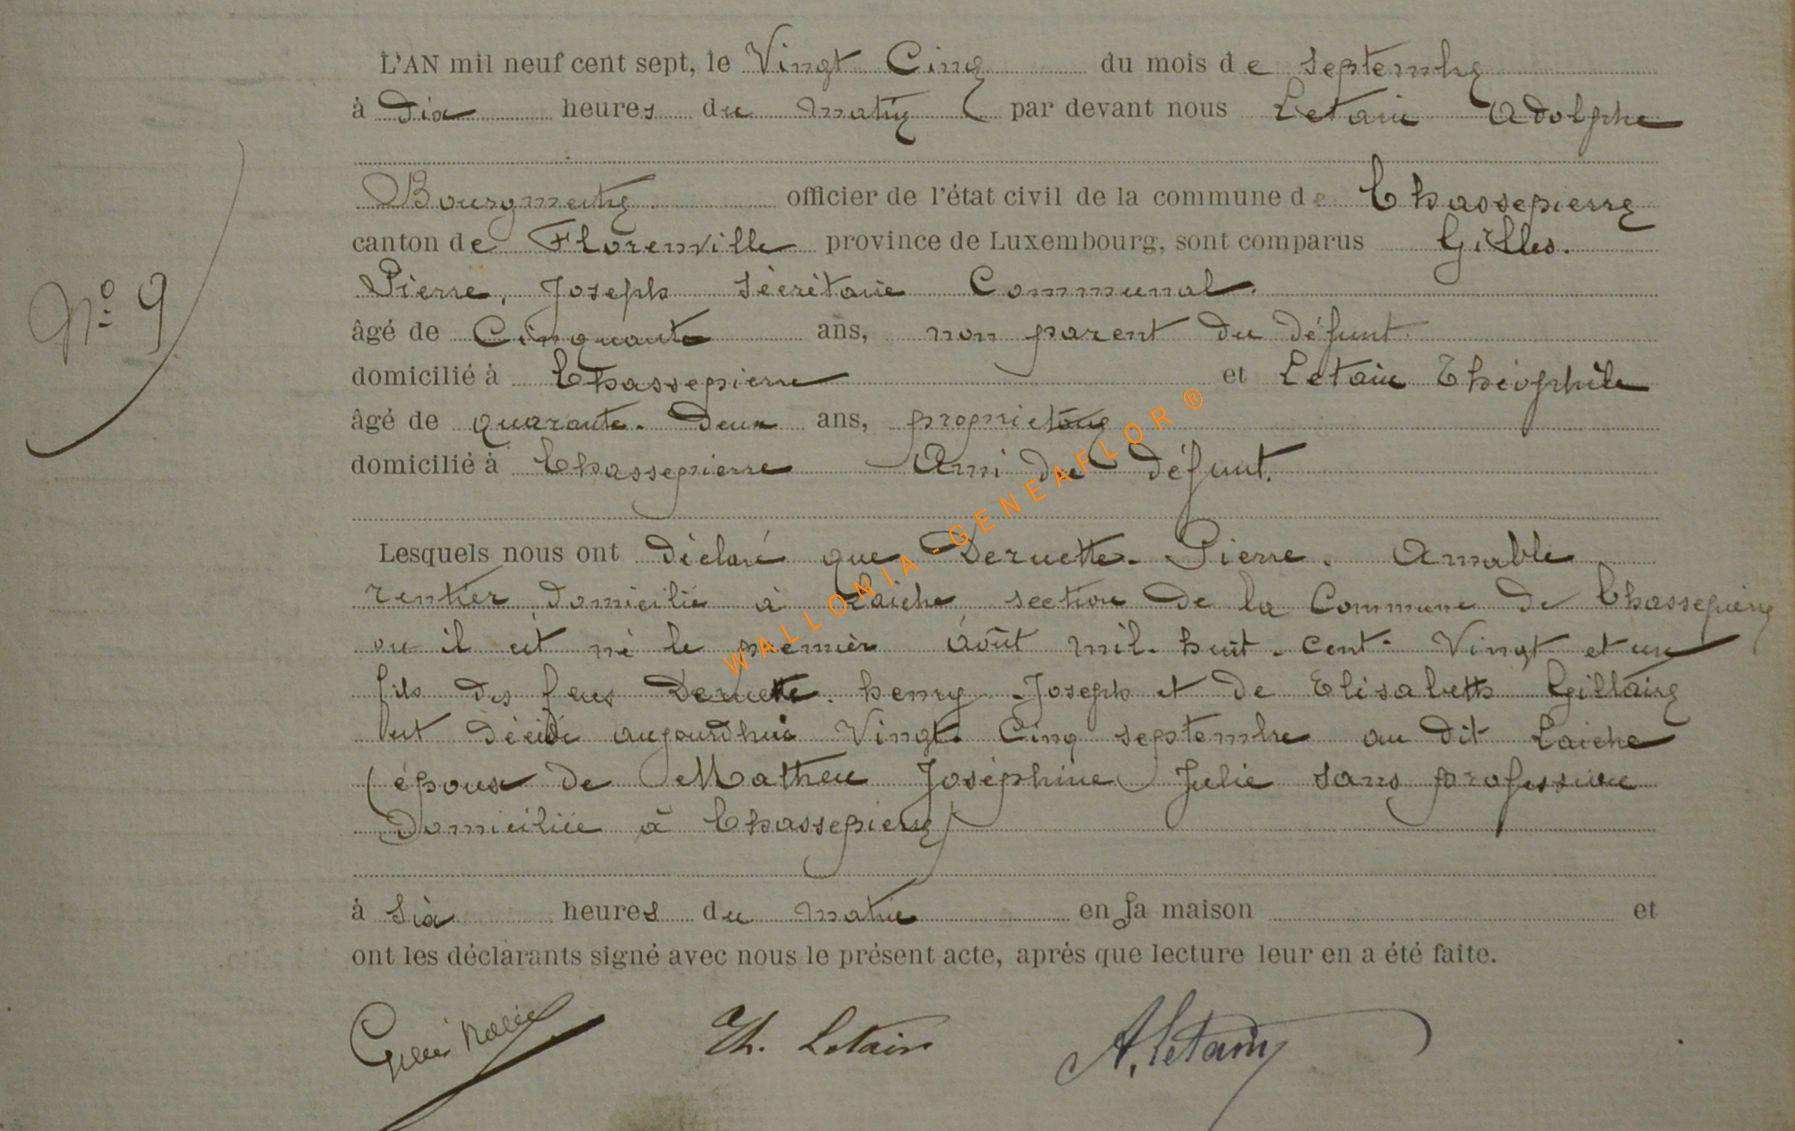 L'AN mil neuf cent sept, le Vingt Cinq du mois de septembre
à dix heures du matin par devant nous Letain Adolphe
Bourgmestre officier de l'état civil de la commune de Chassepierre
canton de Florenville province de Luxembourg, sont comparus Gilles.
Pierre, Joseph Sécrétaire Communal.
N° 9
âgé de Cinquante ans, non parent du défunt.
domicilié à Chassepierre et Letain Théophile
âgé de quarante-deux ans, proprietaire
domicilié à Chassepierre Ami du défunt.
Lesquels nous ont déclaré que Deruette. Pierre. Amable
rentier domicilié à Laiche section de la Commune de Chassepierre
ou il est né le premier Août mil-huit-cent-Vingt et un
fils des feus Deruette. henry-Joseph et de Elisabeth Gillaine
est décédé aujourdhui Vingt-Cinq septembre au dit Laiche
(époux de Matheu Joséphine Julie sans profession
Domiciliée à Chassepierre)
à six heures du matin en sa maison et
ont les déclarants signé avec nous le présent acte, après que lecture leur en a été faite.
Th. Letain A. Letain
WALLONIA-GENEAFLOR®